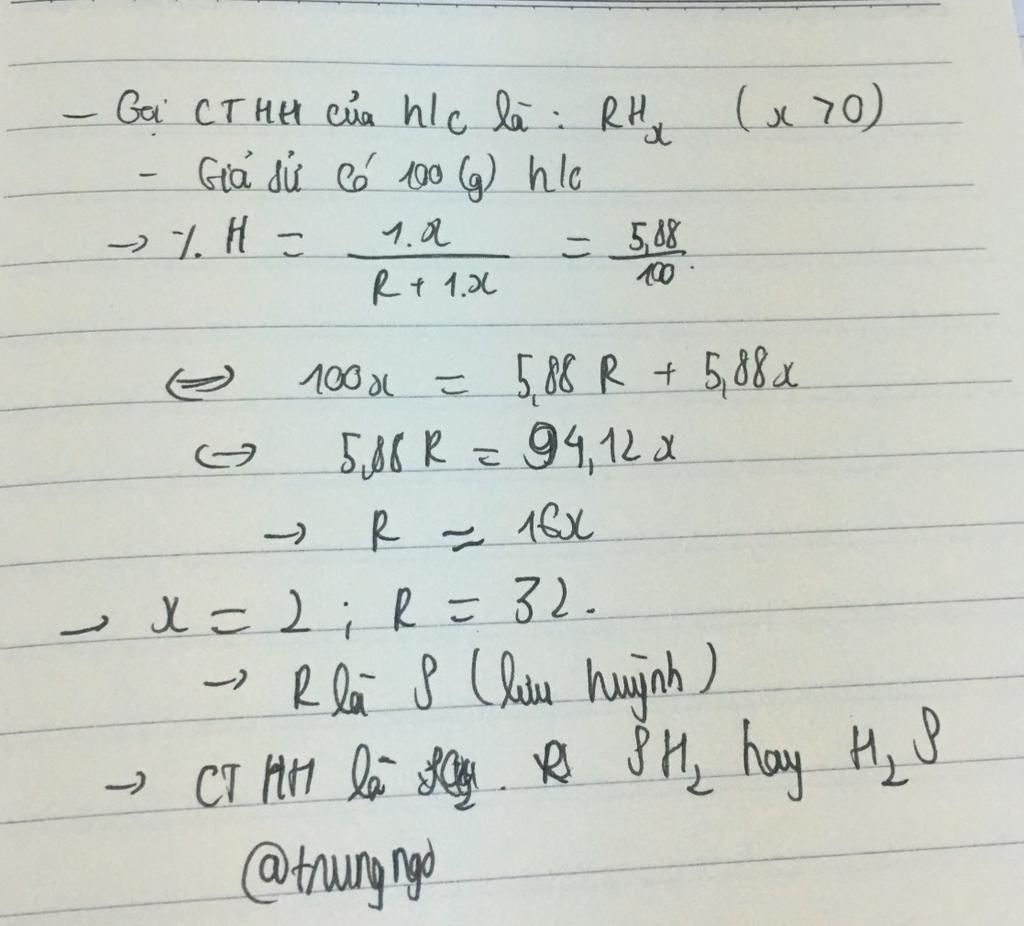 - Gọi CTHH của h/c là : RHₓ (x >0)
- Giả sử có 100 (g) h/c
→ % H = 1.x / (R + 1.x) = 5,88 / 100.
⇔ 100x = 5,88 R + 5,88x
↔ 5,88 R = 94,12 x
→ R ≃ 16x
→ x = 2 ; R = 32.
→ R là S (lưu huỳnh)
→ CTHH là . SH₂ hay H₂S
@trungngo